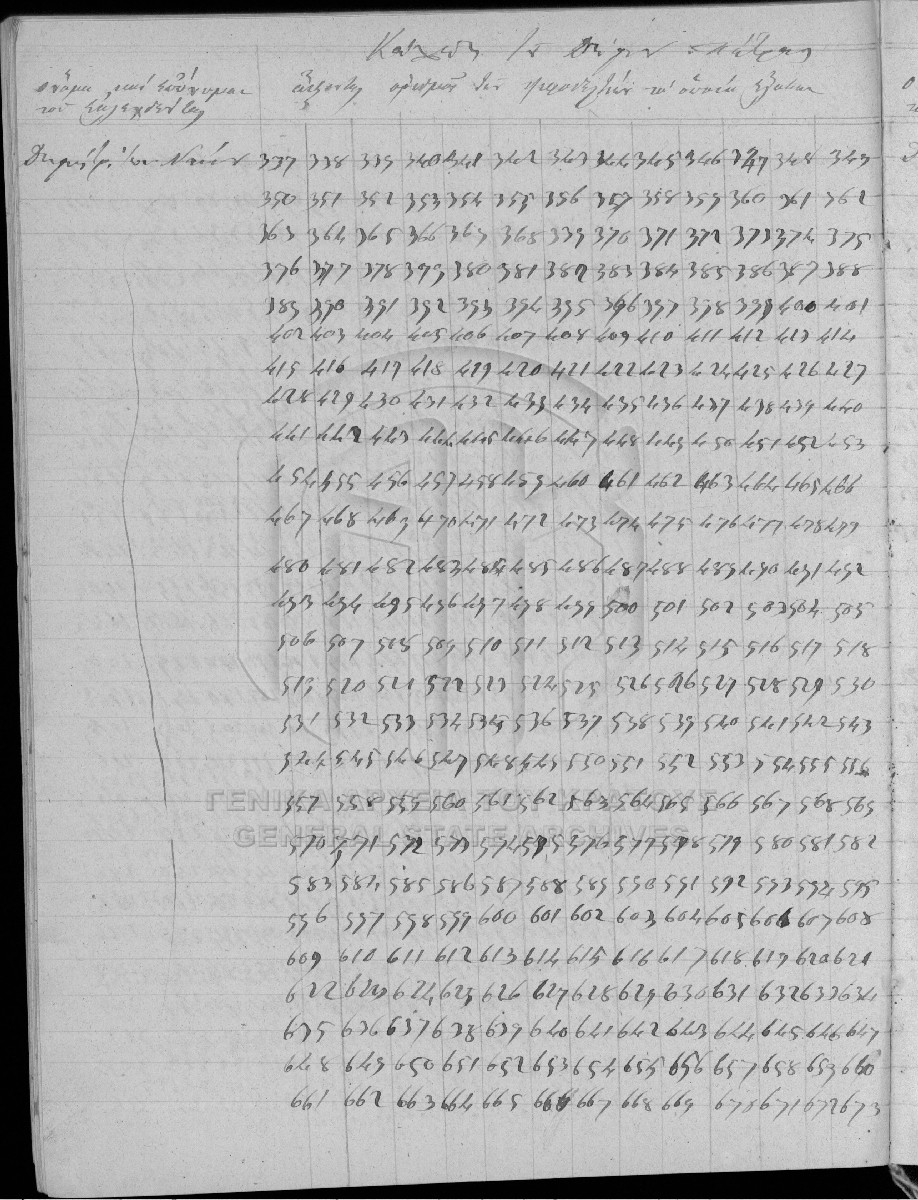 ὄνομα καὶ ἐπώνυμον
τοῦ
337 338 339 340 341 342 343 344 345 346 347 348 349
350 351 352 353 354 355 356 357 358 359 360 361 362
363 364 365 366 367 368 339 370 371 372 373 374 375
376 377 378 379 380 381 382 383 384 385 386 387 388
389 390 391 392 393 394 395 396 397 398 399 400 401
402 403 404 405 406 407 408 409 410 411 412 413 414
415 416 417 418 419 420 421 422 423 424 425 426 427
428 429 430 431 432 433 434 435 436 437 438 439 440
441 442 443 444 445 446 447 448 449 450 451 452 453
454 455 456 457 458 459 460 461 462 463 464 465 466
467 468 469 470 471 472 473 474 475 476 477 478 479
480 481 482 483 484 485 486 487 488 489 490 491 492
493 494 495 496 497 498 499 500 501 502 503 504 505
506 507 508 509 510 511 512 513 514 515 516 517 518
519 520 521 522 523 524 525 526 526 527 528 529 530
531 532 533 534 535 536 537 538 539 540 541 542 543
544 545 546 547 548 549 550 551 552 553 554 555 556
557 558 559 560 561 562 563 564 565 566 567 568 569
ΓΕΝΙΚΑ ΑΡΧΕΙΑ ΤΟΥ ΚΡΑΤΟΥΣ
GENERAL STATE ARCHIVES
570 571 572 573 574 575 576 577 578 579 580 581 582
583 584 585 586 587 588 589 590 591 592 593 594 595
596 597 598 599 600 601 602 603 604 605 606 607 608
609 610 611 612 613 614 615 616 617 618 619 620 621
622 623 624 625 626 627 628 629 630 631 632 633 634
635 636 637 638 639 640 641 642 643 644 645 646 647
648 649 650 651 652 653 654 655 656 657 658 659 660
661 662 663 664 665 666 667 668 669 670 671 672 673